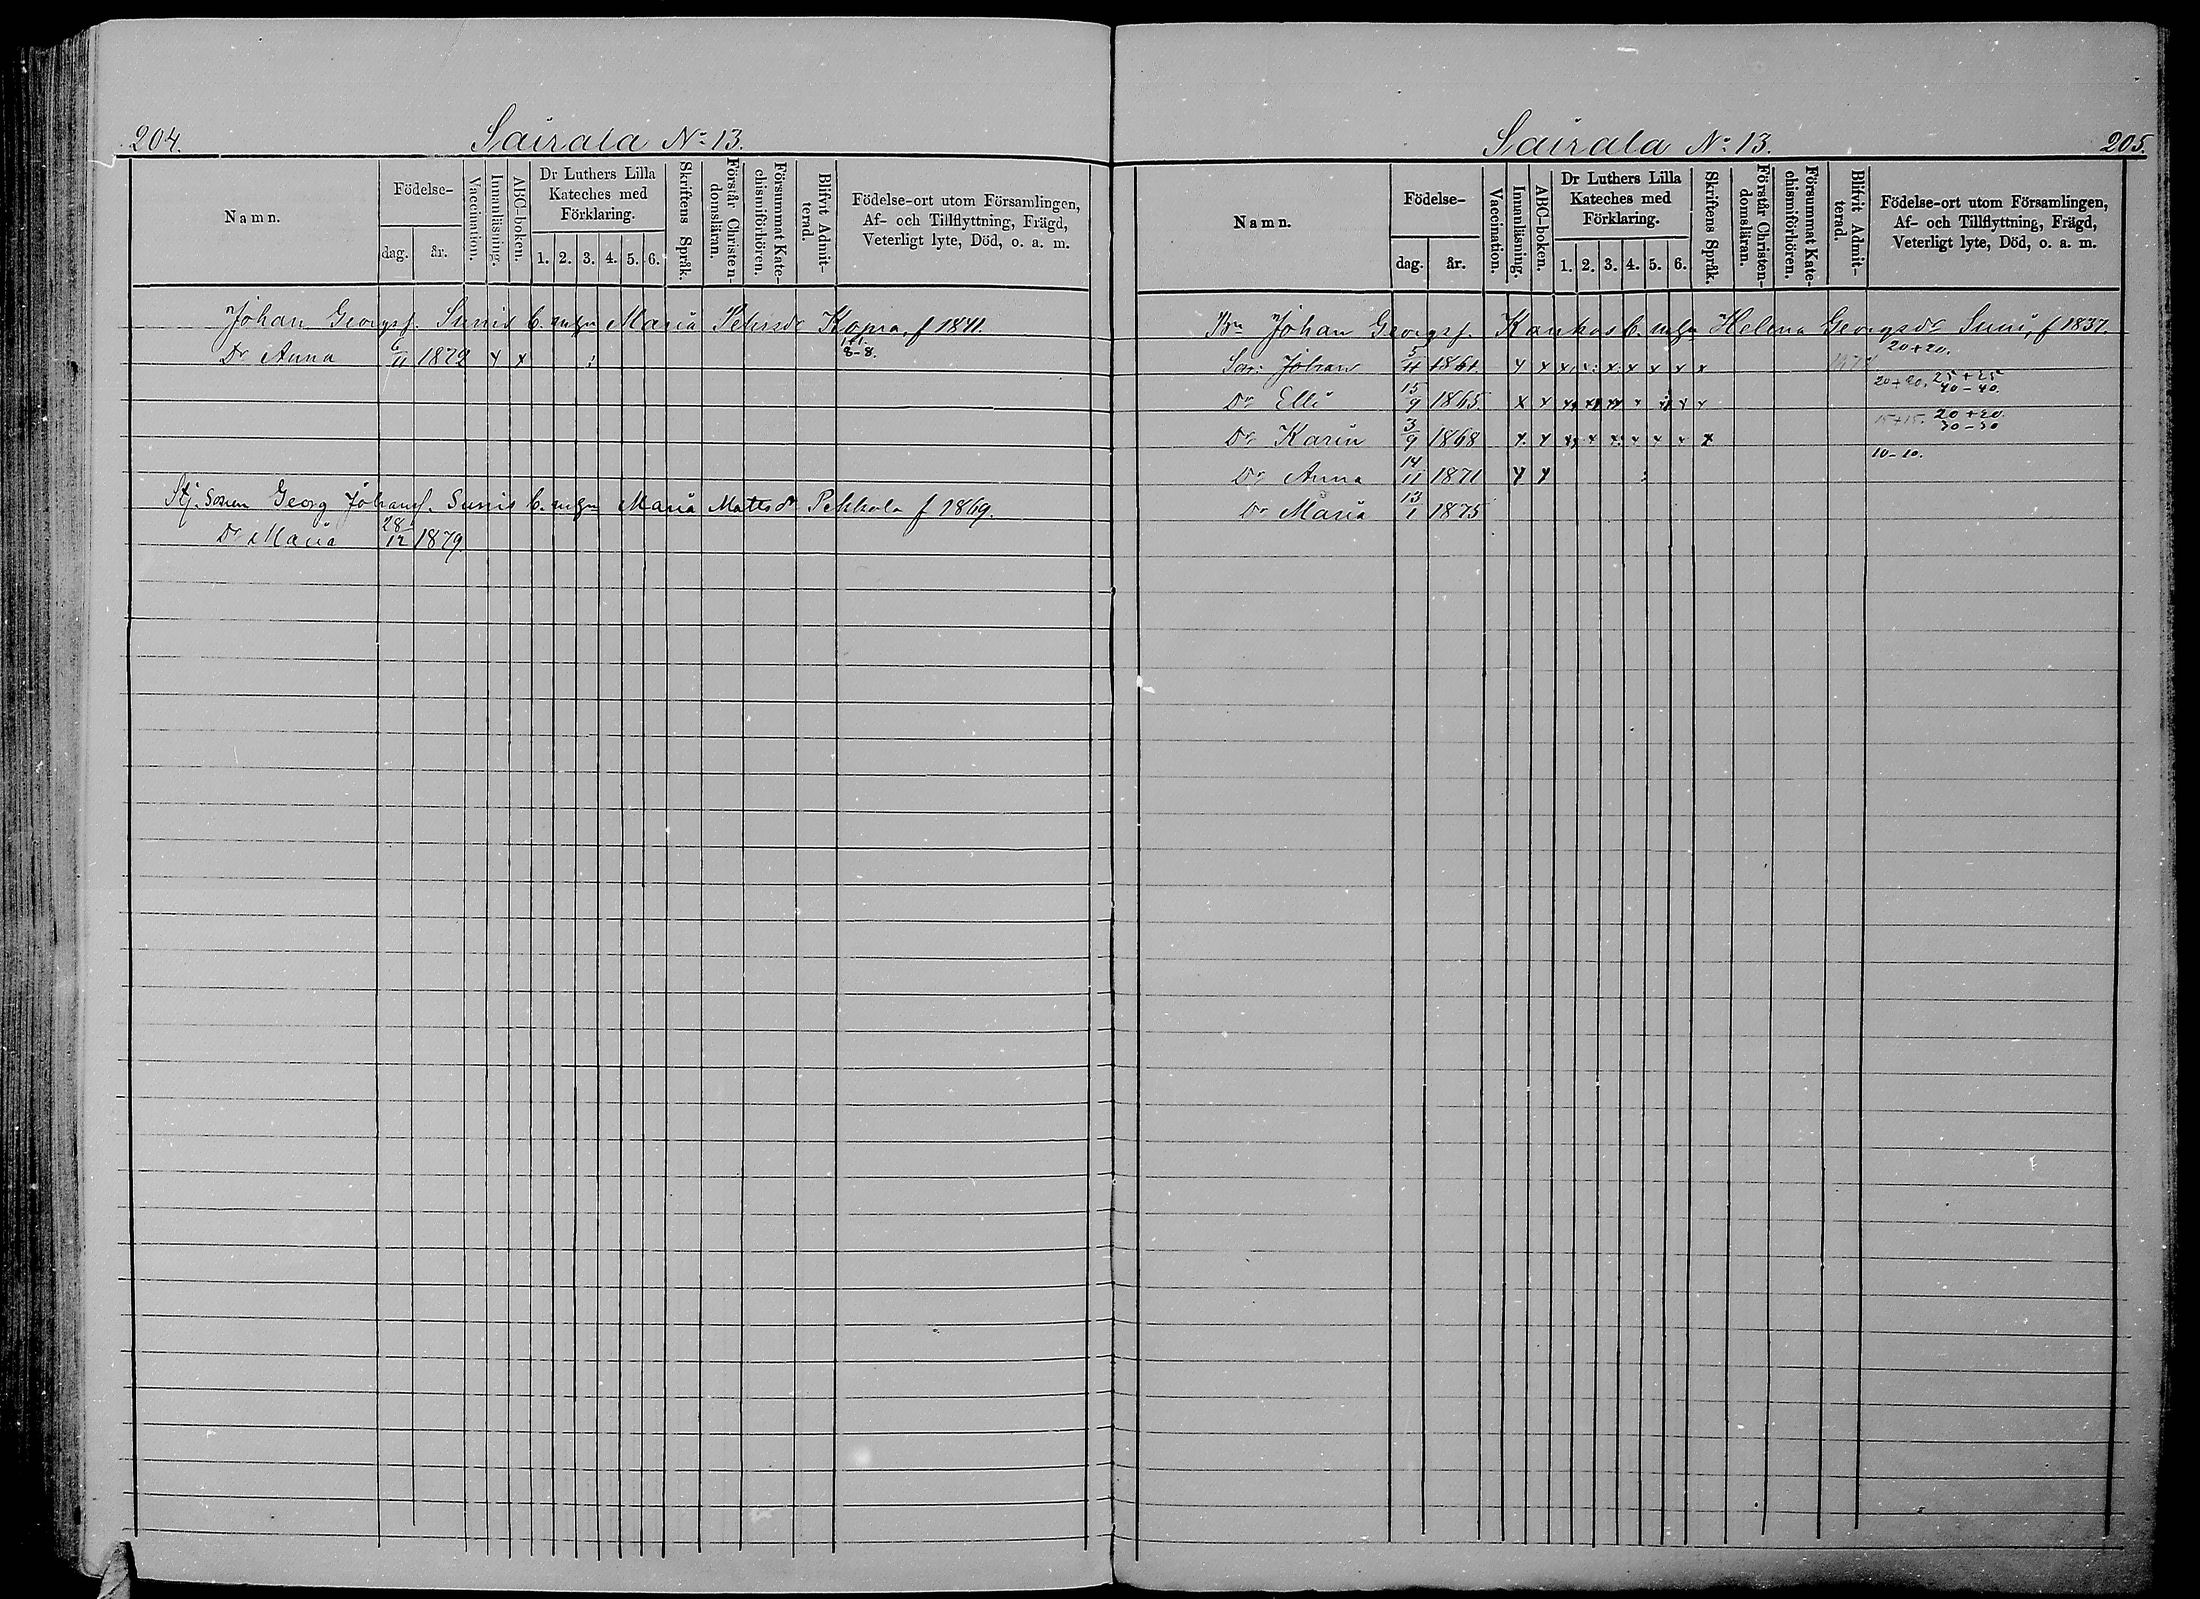 204.
Sairala No 13.
Namn.
Födelse-
dag.
år.
Vaccination.
Innanläsning.
ABC-boken.
Dr Luthers Lilla
Kateches med
Förklaring.
1. 2. 3. 4. 5. 6.
Skriftens Språk.
Förstår Christen-
domsläran.
Försummat Kate-
chismiförhören.
Blifvit Admit-
terad.
Födelse-ort utom Församlingen,
Af- och Tillflyttning, Frägd,
Veterligt lyte, Död, o. a. m.
Johan Georgsf. Sunis Maria Petersdr Kopra, f 1841.
Dr Anna 1872 x x 8-8.
Stj. Sonen Georg Johansf. Sunis Maria Mattsdr Pekkola f 1869.
Dr Maria 28/12 1879.
Sairala No 13.
205.
Namn.
Födelse-
dag.
år.
Vaccination.
Innanläsning.
ABC-boken.
Dr Luthers Lilla
Kateches med
Förklaring.
1. 2. 3. 4. 5. 6.
Skriftens Språk.
Förstår Christen-
domsläran.
Försummat Kate-
chismiförhören.
Blifvit Admit-
terad.
Födelse-ort utom Församlingen,
Af- och Tillflyttning, Frägd,
Veterligt lyte, Död, o. a. m.
Johan Georgsf. Kaukas Helena Georgsdr Suni, f 1837.
Son: Johan 1861 x x x x x x x x x 20+20.
Dr Elli 15/9 1865 x x x x x x x x x 20+20. 25+25 40-40.
Dr Karin 3/9 1868 x x x x x x x x x 15+15. 20+20. 30-30
Dr Anna 14/11 1871 x x 10-10.
Dr Maria 13/1 1875